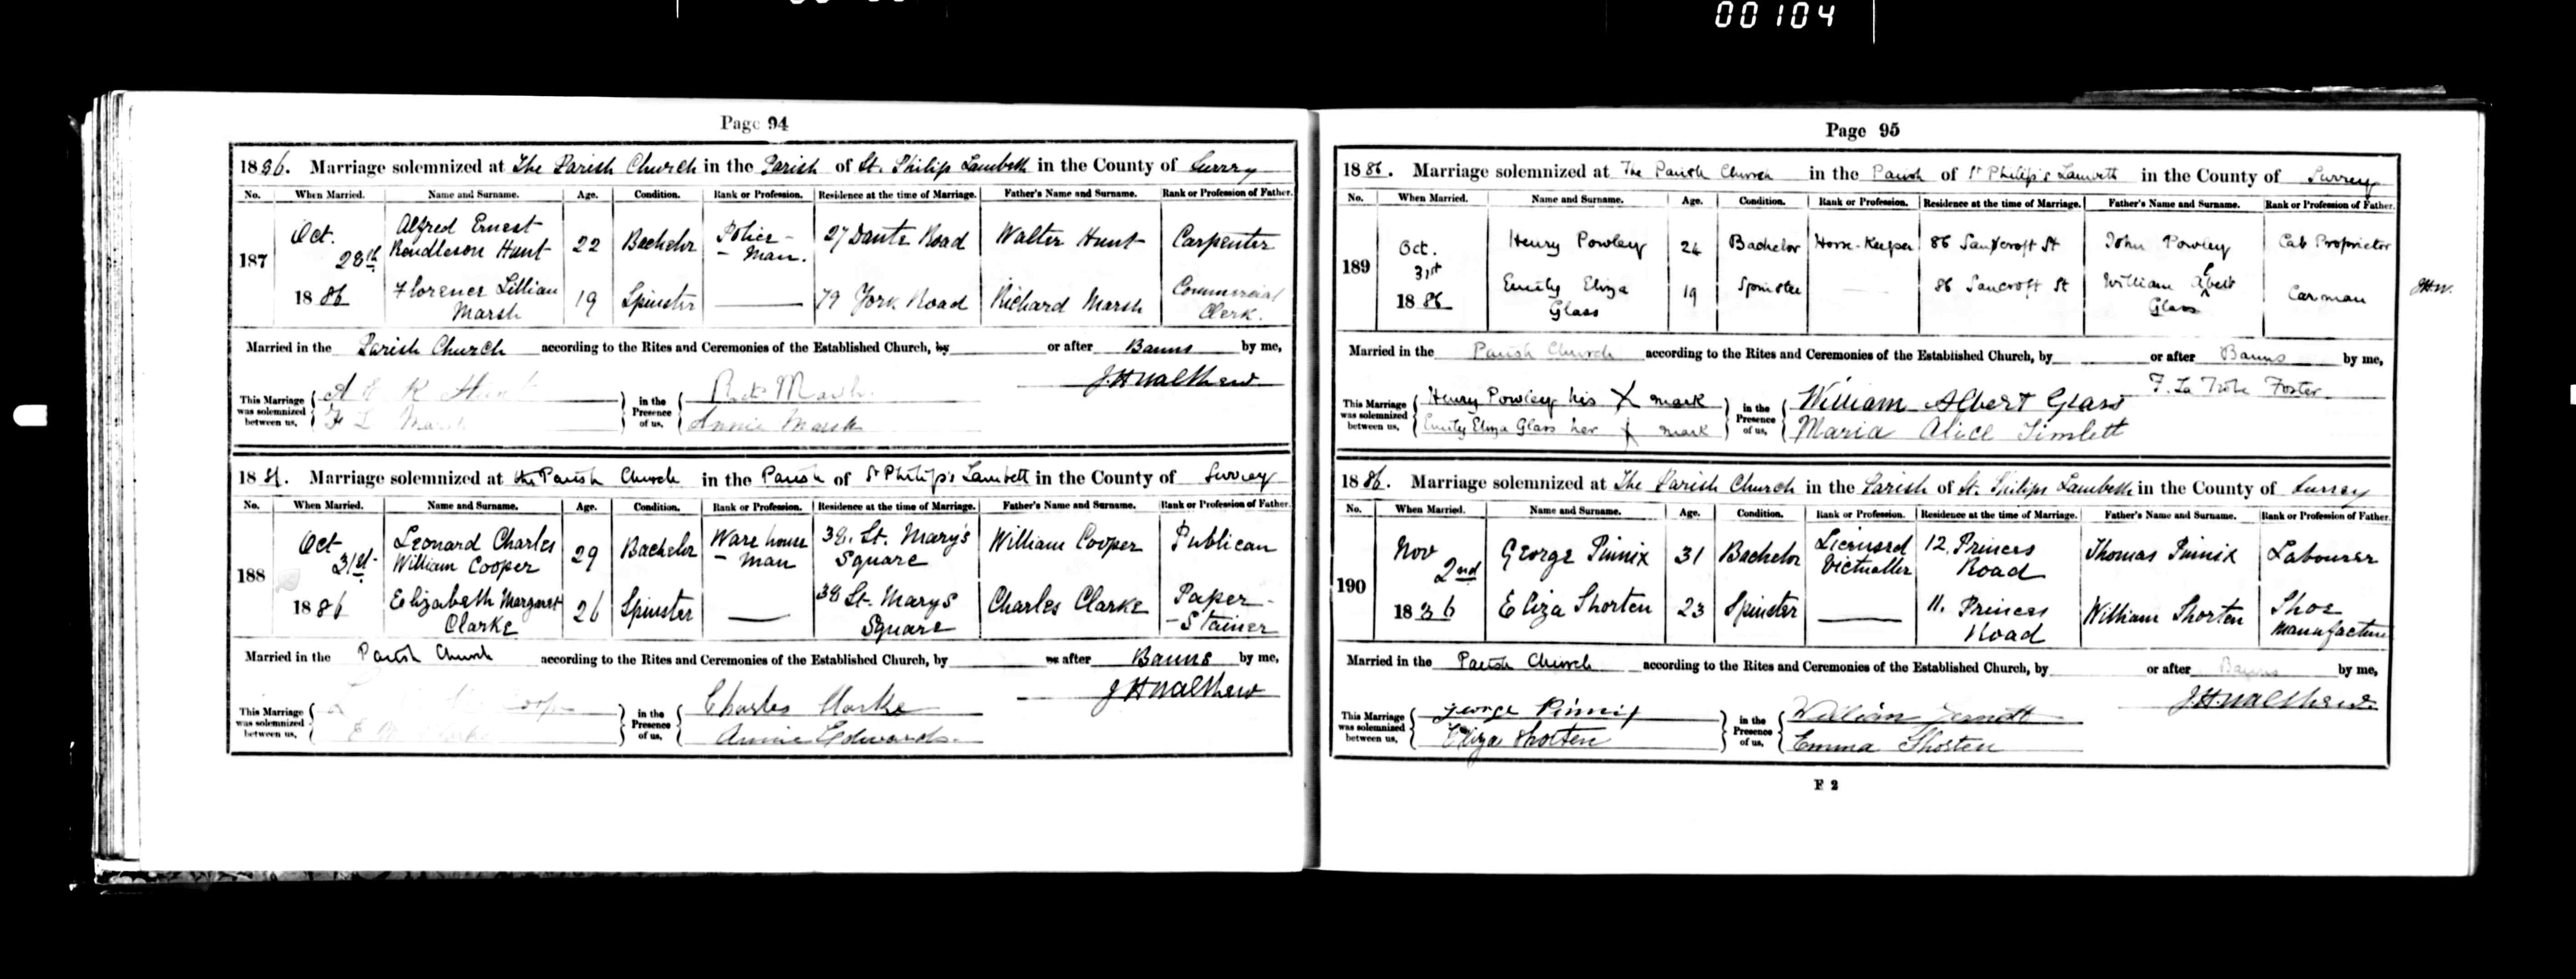 00104
Page 94
1886. Marriage solemnized at The Parish Church in the Parish of St. Philip Lambeth in the County of Surrey
No. When Married. Name and Surname. Age. Condition. Rank or Profession. Residence at the time of Marriage. Father's Name and Surname. Rank or Profession of Father.
187 Oct. 28th 1886
Alfred Ernest Rendleson Hunt 22 Bachelor Police-man. 27 Dante Road Walter Hunt Carpenter
Florence Lillian Marsh 19 Spinster 79 York Road Richard Marsh Commercial Clerk.
Married in the Parish Church according to the Rites and Ceremonies of the Established Church, by or after Banns by me,
J.H. Walthew
This Marriage was solemnized between us, A E R Hunt
F L Marsh
in the Presence of us, Marsh
Annie Marsh
1886. Marriage solemnized at the Parish Church in the Parish of St Philip's Lambeth in the County of Surrey
No. When Married. Name and Surname. Age. Condition. Rank or Profession. Residence at the time of Marriage. Father's Name and Surname. Rank or Profession of Father.
188 Oct 31st 1886
Leonard Charles William Cooper 29 Bachelor Ware house-man 38. St. Mary's Square William Cooper Publican
Elizabeth Margaret Clarke 26 Spinster 38 St. Marys Square Charles Clarke Paper-Stainer
Married in the Parish Church according to the Rites and Ceremonies of the Established Church, by or after Banns by me,
J H Walthew
This Marriage was solemnized between us,
in the Presence of us, Charles Clarke
Annie Edwards
Page 95
1886. Marriage solemnized at The Parish Church in the Parish of St Philip's Lambeth in the County of Surrey
No. When Married. Name and Surname. Age. Condition. Rank or Profession. Residence at the time of Marriage. Father's Name and Surname. Rank or Profession of Father.
189 Oct. 31st 1886
Henry Powley 24 Bachelor Horse-Keeper 86 Sancroft St John Powley Cab Proprietor
Emily Eliza Glass 19 Spinster 86 Sancroft St William Albert Glass Carman
JHW.
Married in the Parish Church according to the Rites and Ceremonies of the Established Church, by or after Banns by me,
F. La Trobe Foster
This Marriage was solemnized between us, Henry Powley his X mark
Emily Eliza Glass her X mark
in the Presence of us, William Albert Glass
Maria Alice Timlett
1886. Marriage solemnized at The Parish Church in the Parish of St. Philips Lambeth in the County of Surrey
No. When Married. Name and Surname. Age. Condition. Rank or Profession. Residence at the time of Marriage. Father's Name and Surname. Rank or Profession of Father.
190 Nov 2nd 1886
George Pinnix 31 Bachelor Licensed Victualler 12. Princes Road Thomas Pinnix Labourer
Eliza Shorten 23 Spinster 11. Princess Road William Shorten Shoe Manufacturer
Married in the Parish Church according to the Rites and Ceremonies of the Established Church, by or after Banns by me,
J.H. Walthew
This Marriage was solemnized between us, George Pinnix
Eliza Shorten
in the Presence of us, William
Emma Shorten
F 2